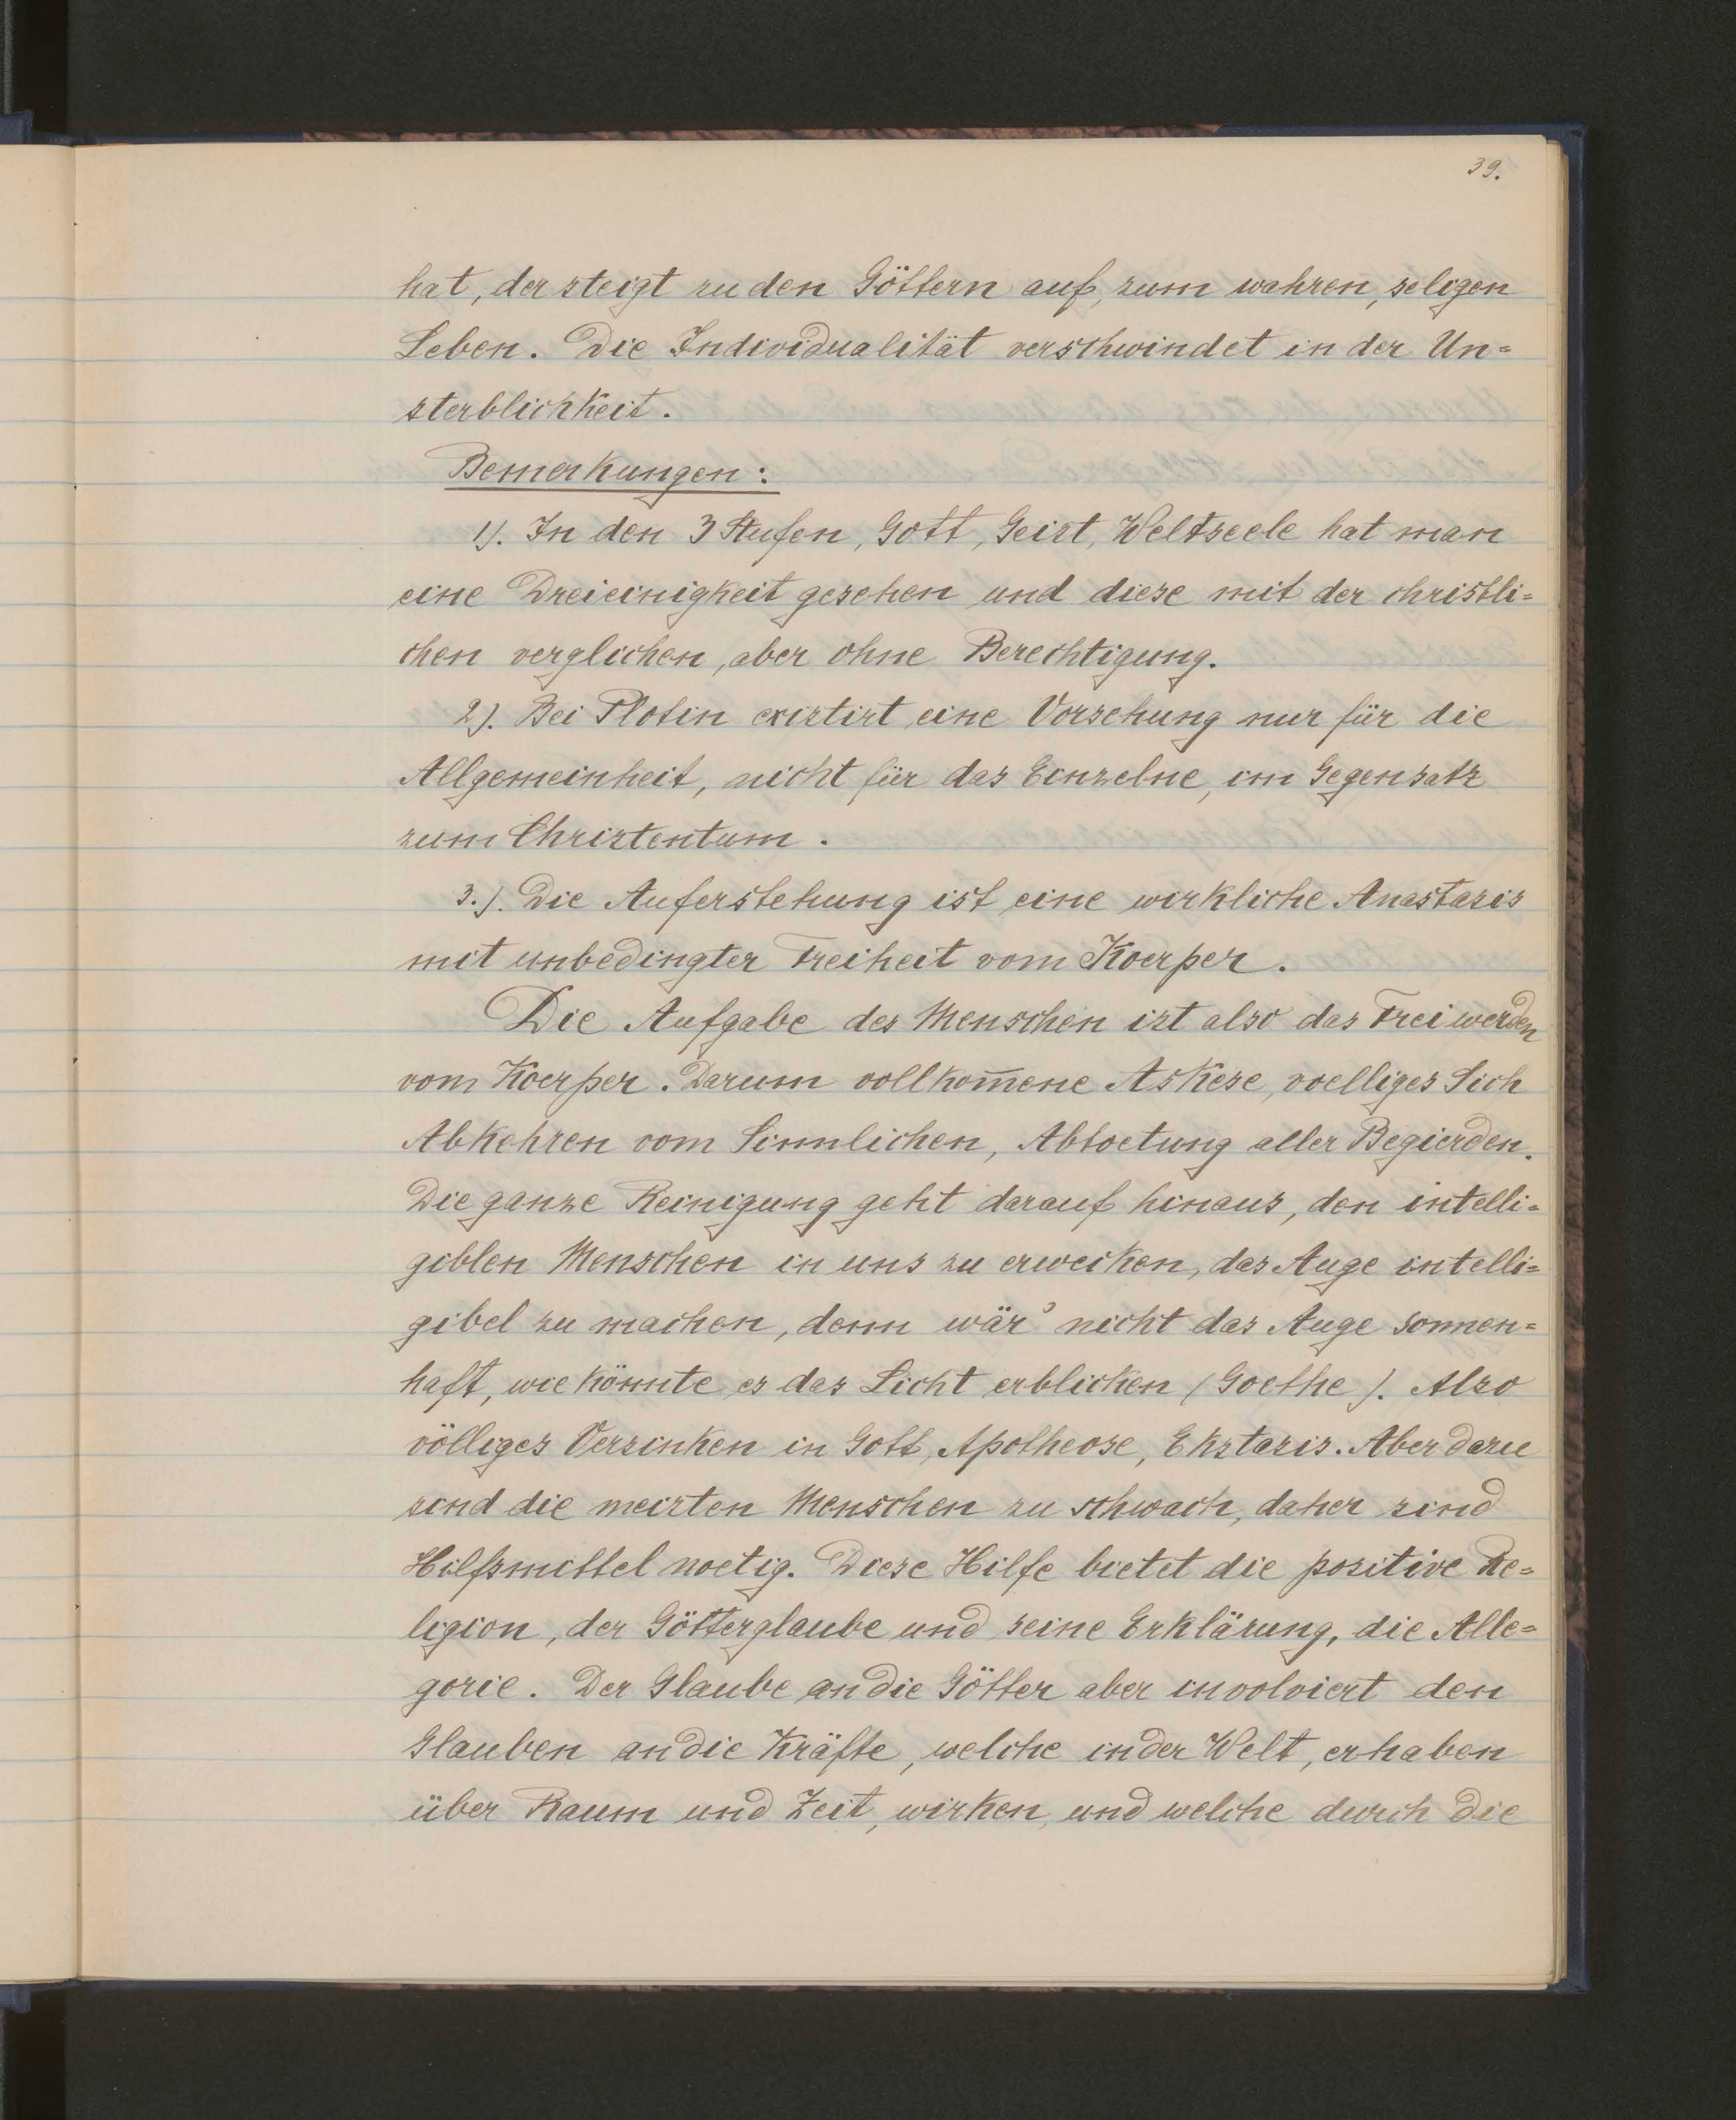 39.
hat, der steigt zu den Göttern auf, zum wahren, seligen
Leben. Die Individualität verschwindet in der Un=
sterblichkeit.
Bemerkungen:
1). In den 3 Stufen, Gott, Geist, Weltseele hat man
eine Dreieinigkeit gesehen und diese mit der christli=
chen verglichen, aber ohne Berechtigung.
2). Bei Plotin existirt eine Vorsehung nur für die
Allgemeinheit, nicht für das Einzelne, im Gegensatz
zum Christentum.
3.). Die Auferstehung ist eine wirkliche Anastasis
mit unbedingter Freiheit vom Koerper.
Die Aufgabe des Menschen ist also das Freiwerden
vom Koerper. Darum vollkom̅ene Askese, voelliges Sich
Abkehren vom Sinnlichen, Abtoetung aller Begierden.
Die ganze Reinigung geht darauf hinaus, den intelli=
giblen Menschen in uns zu erwecken, das Auge intelli=
gibel zu machen, denn wär' nicht das Auge sonnen=
haft, wie könnte es das Licht erblicken (Goethe). Also
völliges Versinken in Gott, Apotheose, Ekstasis. Aber dazu
sind die meisten Menschen zu schwach, daher sind
Hilfsmittel noetig. Diese Hilfe bietet die positive Re=
ligion, der Götterglaube und seine Erklärung, die Alle=
gorie. Der Glaube an die Götter aber involviert den
Glauben an die Kräfte, welche in der Welt, erhaben
über Raum und Zeit, wirken, und welche durch die